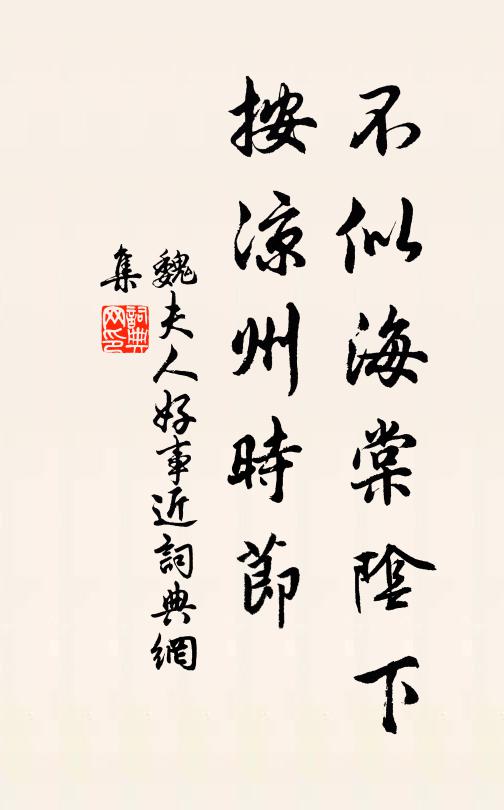 不似海棠陰下
按涼州時節
魏夫人好事近詞典網
集
詞典网印